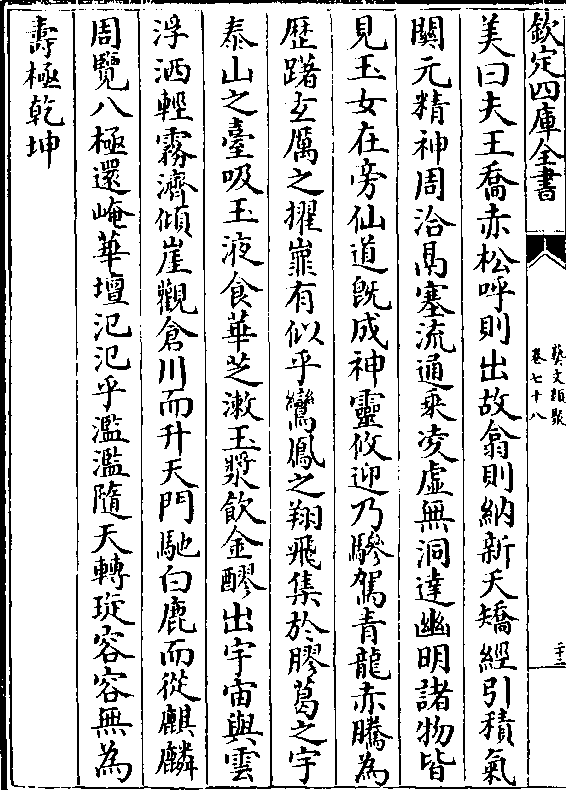 欽定四庫全書
藝文類聚
卷七十八
二十二
美曰夫王喬赤松呼則出故翕則納新夭矯經引積氣
關元精神周洽鬲塞流通乘凌虛無洞達幽明諸物皆
見玉女在旁仙道旣成神靈攸迎乃驂駕青龍赤騰為
歴躇玄厲之擢嶵有似乎鸞鳳之翔飛集於膠葛之宇
泰山之臺吸玉液食華芝漱玉漿飲金醪出宇宙與雲
浮洒輕霧濟傾崖觀倉川而升天門馳白鹿而從麒麟
周覽八極還崦華壇氾氾乎濫濫隨天轉琁容容無為
壽極乾坤